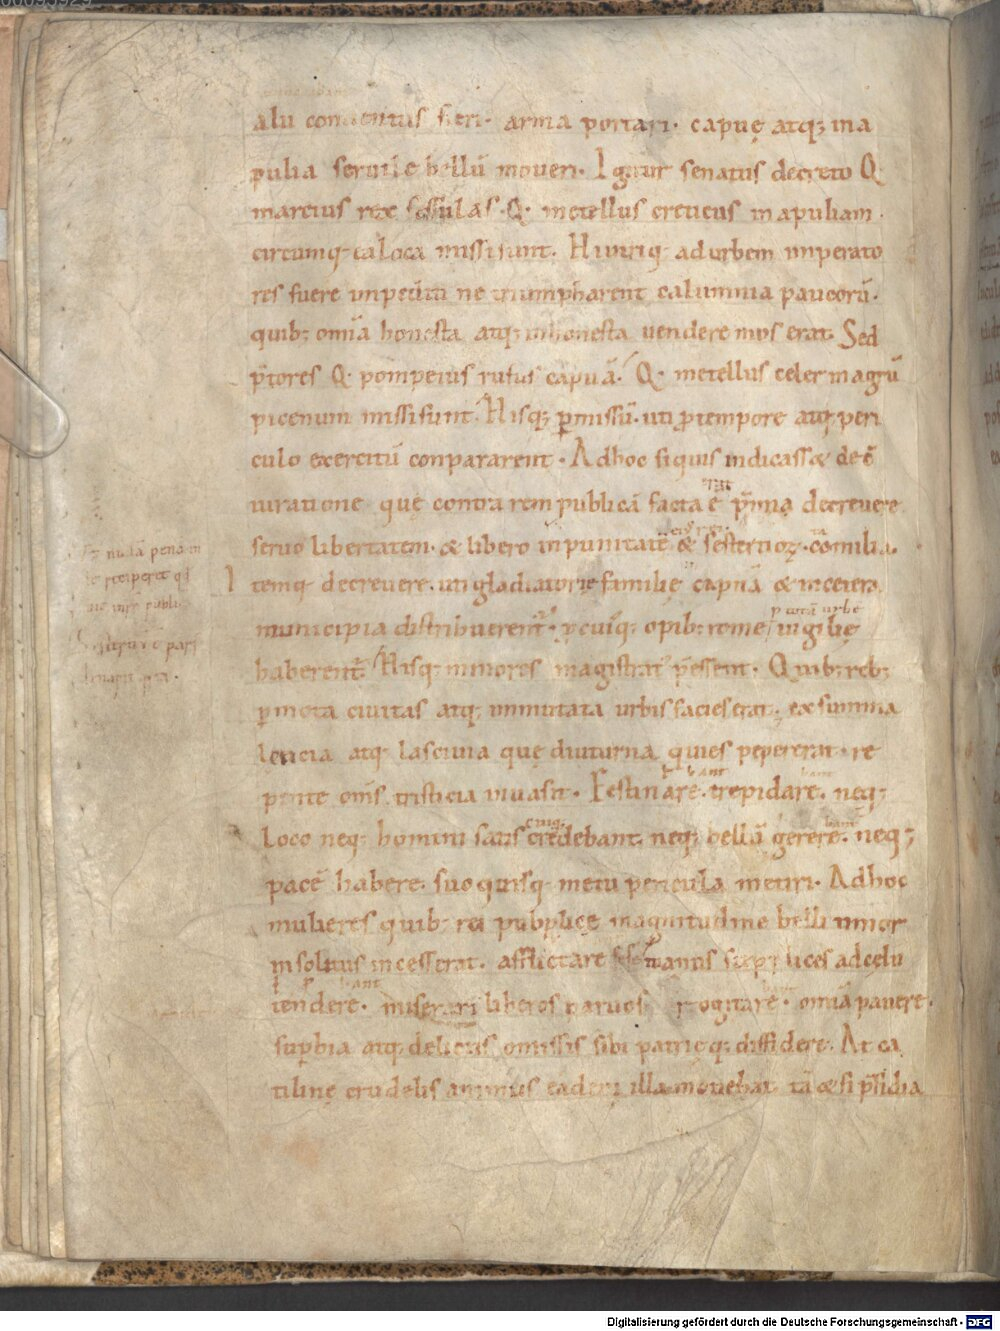 alii conuentus fieri. arma portari. capuę atq; in a
pulia seruile bellū moueri. Igitur senatus decreto Q
marcius rex fessulas. Q. metellus creticus in apuliam.
circumq; ea loca missi sunt. Hi utriq; ad urbem imperato
res fuere inpediti ne triumpharent calumnia paucorū.
quib; omīa honesta atq; inhonesta uendere mos erat. Sed
p̄tores Q. pompeius rufus capuā. Q. metellus celer in agrū
picenum missi sunt. Hisq; p̲missū. uti p̲ tempore atq; peri
culo exercitū conpararent. Ad hoc si quis indicass& de cō
iuratione quę contra rem publicā facta ē p̄mia decreuere
erat
seruo libertatem. & libero inpunitatē & sestertioꝝ. c. milia.
Item q; decreuere. uti gladiatorię familię capuā & in cetera
municipia distribuerent̄. p̲ cuiq; opib; rome uigilię
p totā urbē
haberent̄ Hisq; minores magistrat; p̄essent. Quib; reb;
p̲mota ciuitas atq; inmutata urbis facies erat. ex summa
leticia atq; lasciuia quę diuturna quies pepererat. re
pente om̄s tristicia inuasit. Festinare. trepidare. neq;
bant
loco neq; homini satis credebant. neq; bellū gerere. neq;
cuiq;
bant
pacē habere. suo quisq; metu pericula metiri. Ad hoc
mulieres quib; rei pupplicę magnitudine belli timor
insolitus incesserat. afflictare sese manus supplices ad celū
tendere. miserari liberos paruos rogitare. omīa pauere.
bant
sup̲bia atq; deliciis omissis sibi patrięq; diffidere. At ca
tilinę crudelis animus eadem illa mouebat tā&si p̄sidia